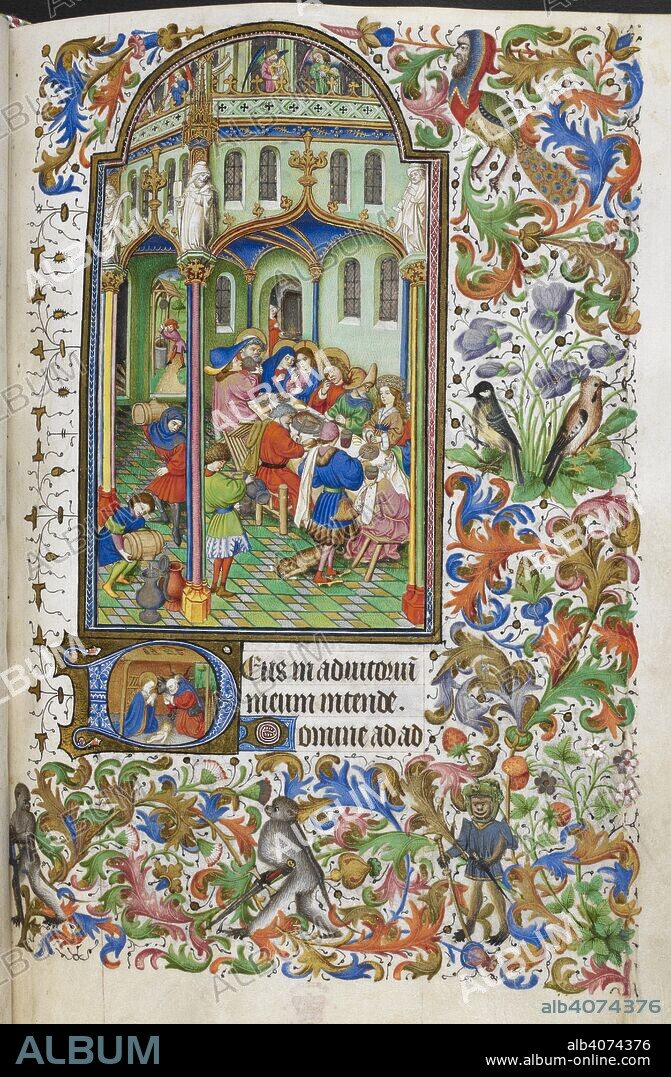 Deus in adiutoriū
meum intende.
Domine ad ad
ALBUM
alb4074376
alb4074376
www.album-online.com